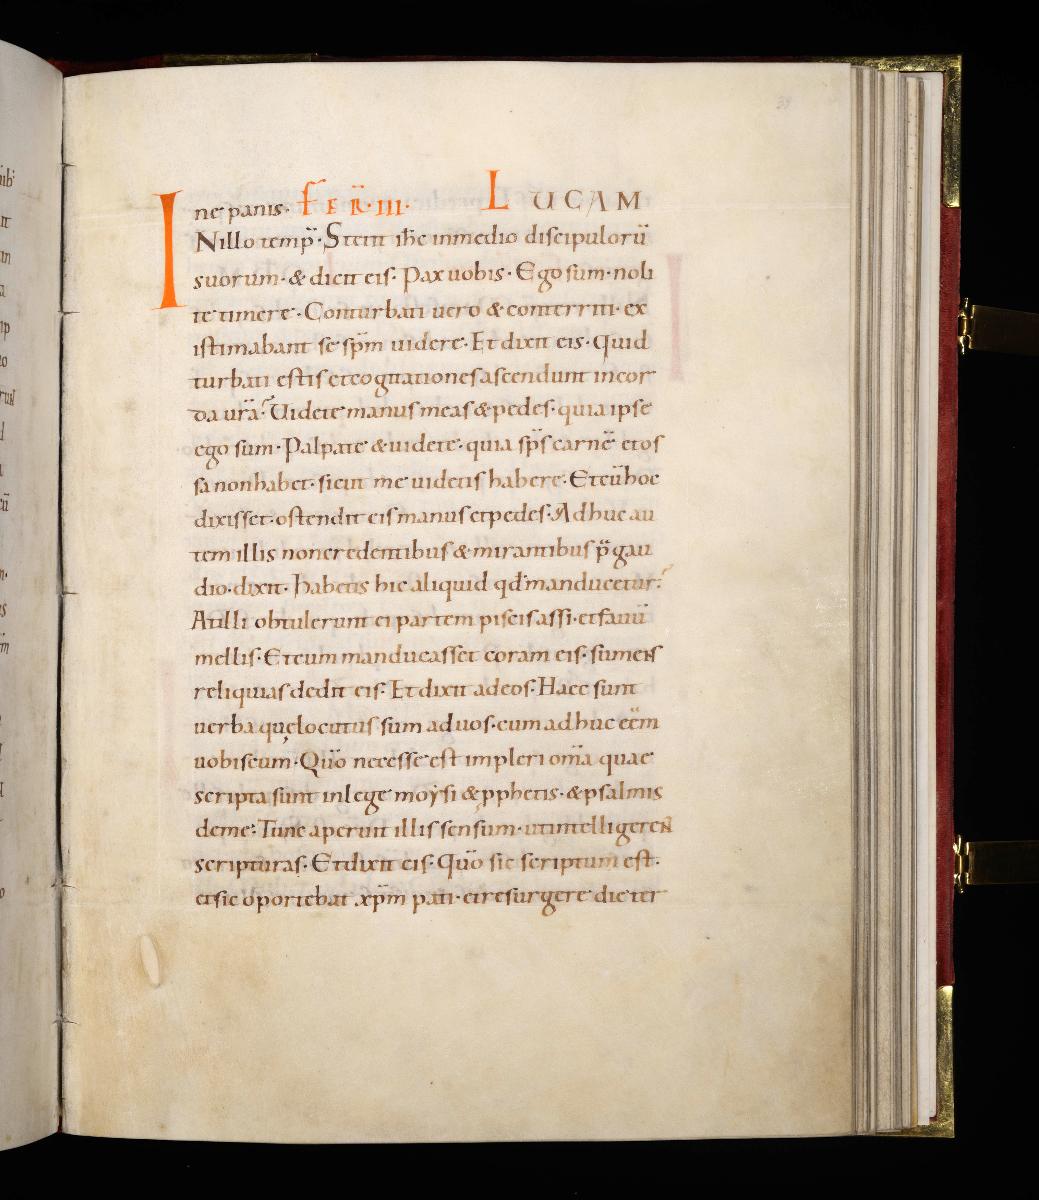 ne panis. FER. III. LUCAM
INillo temp̄. Stetit ih̄c inmedio discipulorū
suorum. & dicit eis. Pax uobis. Ego sum. noli
te timere. Conturbati uero & conterriti. ex
istimabant se sp̄m uidere. Et dixit eis. Quid
turbati estis et cogitationes ascendunt in cor
da ur̄a. Uidete manus meas & pedes. quia ipse
ego sum. Palpate & uidete. quia sp̄s carnē et os
sa non habet. sicut me uidetis habere. Et cū hoc
dixisset. ostendit eis manus et pedes. Adhuc au
tem illis non credentibus & mirantibus p̄ gau
dio. dixit. Habetis hic aliquid qd̄ manducetur.
At illi obtulerunt ei partem piscis assi. et fauū
mellis. Et cum manducasset coram eis. sumens
reliquias dedit eis. Et dixit ad eos. Haec sunt
uerba quę locutus sum ad uos. cum adhuc eēm
uobiscum. Qūo necesse est impleri om̄a quae
scripta sunt in lege moẏsi & pphetis. & psalmis
de me. Tunc aperuit illis sensum. ut intelligerent
scripturas. Et dixit eis. Qūo sic scriptum est.
et sic oportebat xp̄m pati. et resurgere die ter